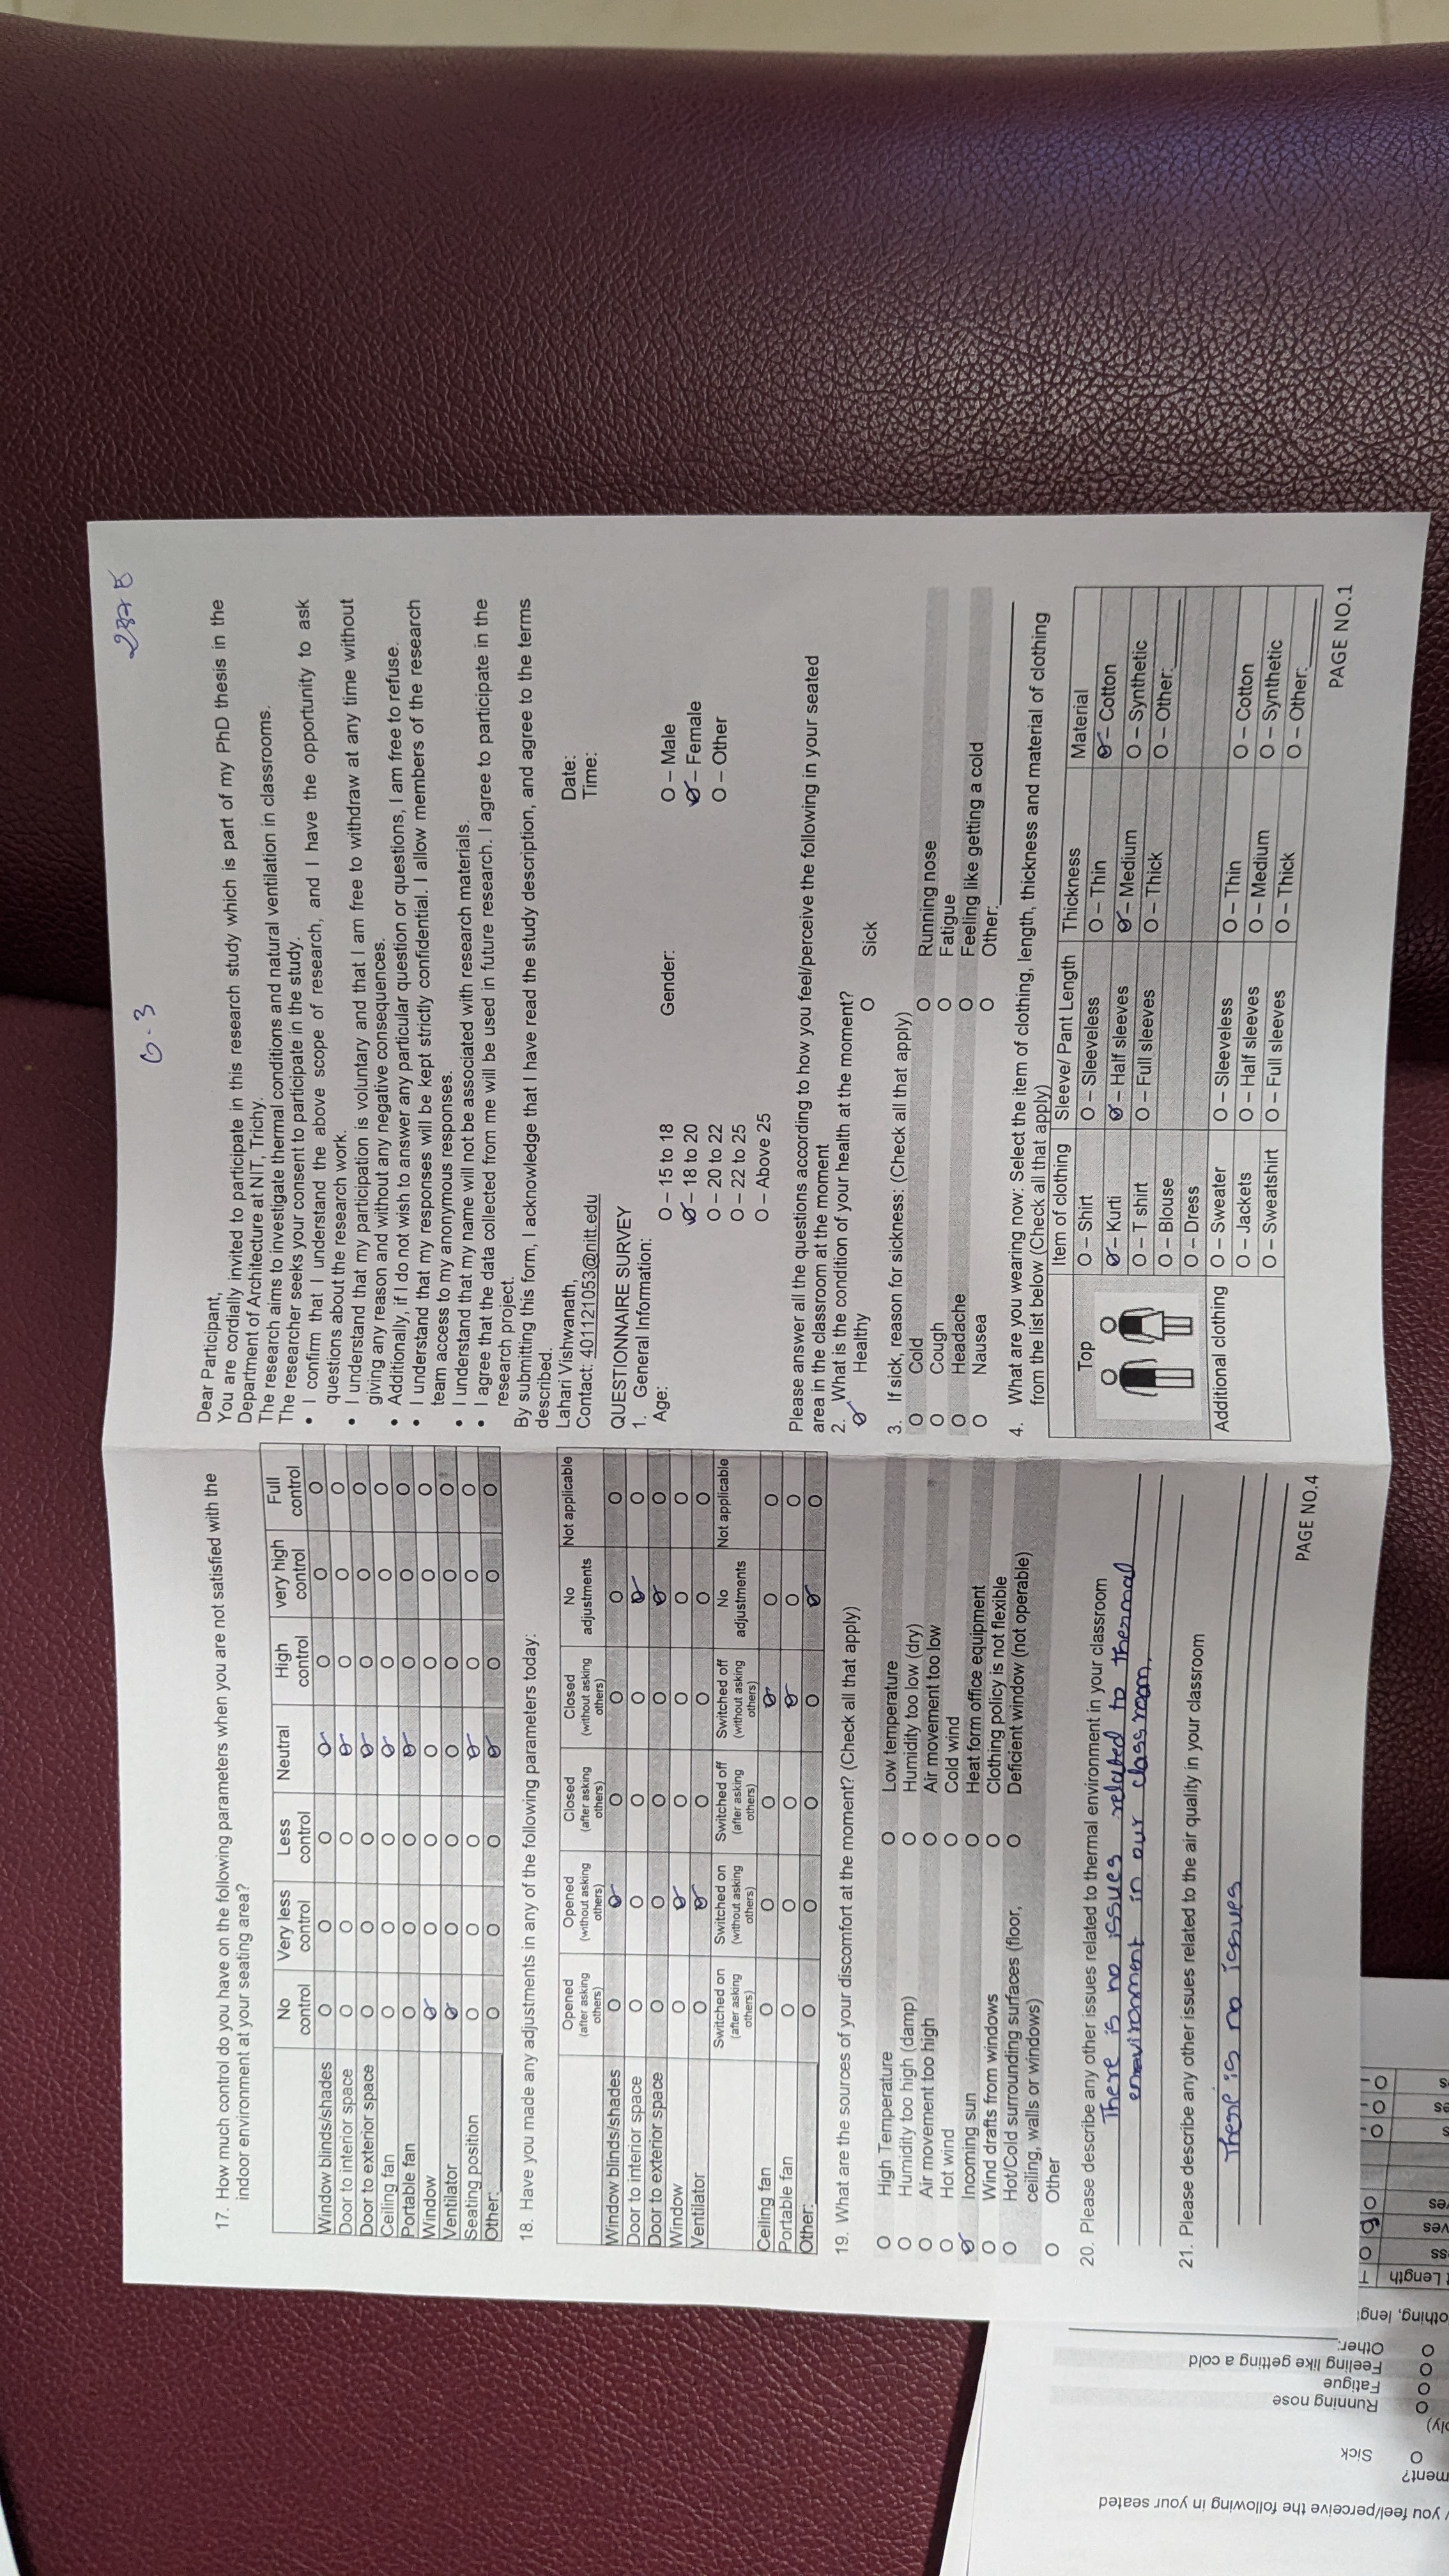 17. How much control do you have on the following parameters when you are not satisfied with the
indoor environment at your seating area?
No control Very less control Less control Neutral High control very high control Full control
Window blinds/shades O O O O O O O
Door to interior space O O O O O O O
Door to exterior space O O O O O O O
Ceiling fan O O O O O O O
Portable fan O O O O O O O
Window O O O O O O O
Ventilator O O O O O O O
Seating position O O O O O O O
Other: O O O O O O O
18. Have you made any adjustments in any of the following parameters today:
Opened (after asking others) Opened (without asking others) Closed (after asking others) Closed (without asking others) No adjustments Not applicable
Window blinds/shades O O O O O O
Door to interior space O O O O O O
Door to exterior space O O O O O O
Window O O O O O O
Ventilator O O O O O O
Switched on (after asking others) Switched on (without asking others) Switched off (after asking others) Switched off (without asking others) No adjustments Not applicable
Ceiling fan O O O O O O
Portable fan O O O O O O
Other: O O O O O O
19. What are the sources of your discomfort at the moment? (Check all that apply)
O High Temperature O Low temperature
O Humidity too high (damp) O Humidity too low (dry)
O Air movement too high O Air movement too low
O Hot wind O Cold wind
O Incoming sun O Heat form office equipment
O Wind drafts from windows O Clothing policy is not flexible
O Hot/Cold surrounding surfaces (floor, O Deficient window (not operable)
ceiling, walls or windows)
O Other
20. Please describe any other issues related to thermal environment in your classroom
There is no issues related to thermal
environment in our classroom.
21. Please describe any other issues related to the air quality in your classroom
There is no issues
PAGE NO.4
G-3
Dear Participant,
You are cordially invited to participate in this research study which is part of my PhD thesis in the
Department of Architecture at NIT, Trichy.
The research aims to investigate thermal conditions and natural ventilation in classrooms.
The researcher seeks your consent to participate in the study.
• I confirm that I understand the above scope of research, and I have the opportunity to ask
questions about the research work.
• I understand that my participation is voluntary and that I am free to withdraw at any time without
giving any reason and without any negative consequences.
• Additionally, if I do not wish to answer any particular question or questions, I am free to refuse.
• I understand that my responses will be kept strictly confidential. I allow members of the research
team access to my anonymous responses.
• I understand that my name will not be associated with research materials.
• I agree that the data collected from me will be used in future research. I agree to participate in the
research project.
By submitting this form, I acknowledge that I have read the study description, and agree to the terms
described.
Lahari Vishwanath, Date:
Contact: 401121053@nitt.edu Time:
QUESTIONNAIRE SURVEY
1. General Information:
Age: O – 15 to 18 Gender: O – Male
O – 18 to 20 O – Female
O – 20 to 22 O – Other
O – 22 to 25
O – Above 25
Please answer all the questions according to how you feel/perceive the following in your seated
area in the classroom at the moment
2. What is the condition of your health at the moment?
O Healthy O Sick
3. If sick, reason for sickness: (Check all that apply)
O Cold O Running nose
O Cough O Fatigue
O Headache O Feeling like getting a cold
O Nausea O Other:
4. What are you wearing now: Select the item of clothing, length, thickness and material of clothing
from the list below (Check all that apply)
Item of clothing Sleeve/ Pant Length Thickness Material
Top O – Shirt O – Sleeveless O – Thin O – Cotton
O – Kurti O – Half sleeves O – Medium O – Synthetic
O – T shirt O – Full sleeves O – Thick O – Other:
O – Blouse
O – Dress
Additional clothing O – Sweater O – Sleeveless O – Thin O – Cotton
O – Jackets O – Half sleeves O – Medium O – Synthetic
O – Sweatshirt O – Full sleeves O – Thick O – Other:
PAGE NO.1
you feel/perceive the following in your seated
ment?
O Sick
O Running nose
O Fatigue
O Feeling like getting a cold
O Other:
Length